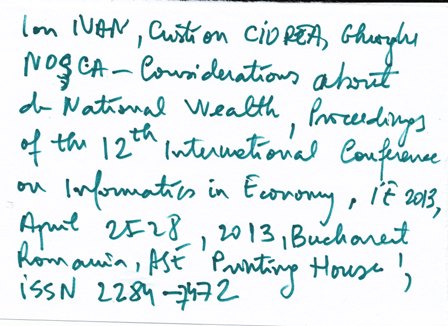 Ion IVAN, Cristian CIUREA, Gheorghe
NOȘCA – Considerations about
d– National Wealth, Proceedings
of the 12th International Conference
on Informatics in Economy, IE 2013,
April 25-28, 2013, Bucharest
Romania, ASE Printing House,
ISSN 2284-7472